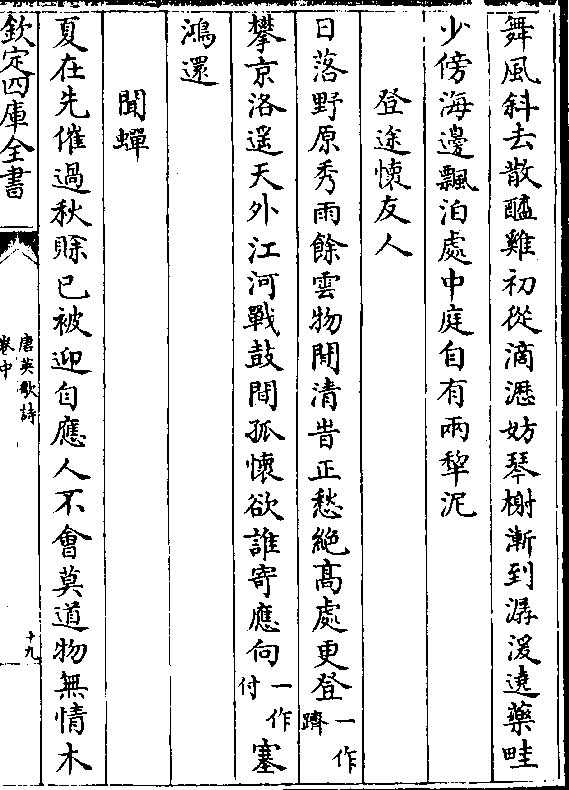 舞風斜去散醯雞初從滴瀝妨琴榭漸到潺湲遶藥畦
少傍海邊飄泊處中庭自有兩犂泥
登途懷友人
日落野原秀雨餘雲物閒清時正愁絶髙處更登一作躋
攀京洛遥天外江河戰鼓間孤懷欲誰寄應向一作付塞
鴻還
聞蟬
夏在先催過秋賖已被迎自應人不會莫道物無情木
欽定四庫全書
唐英歌詩
卷中
十九